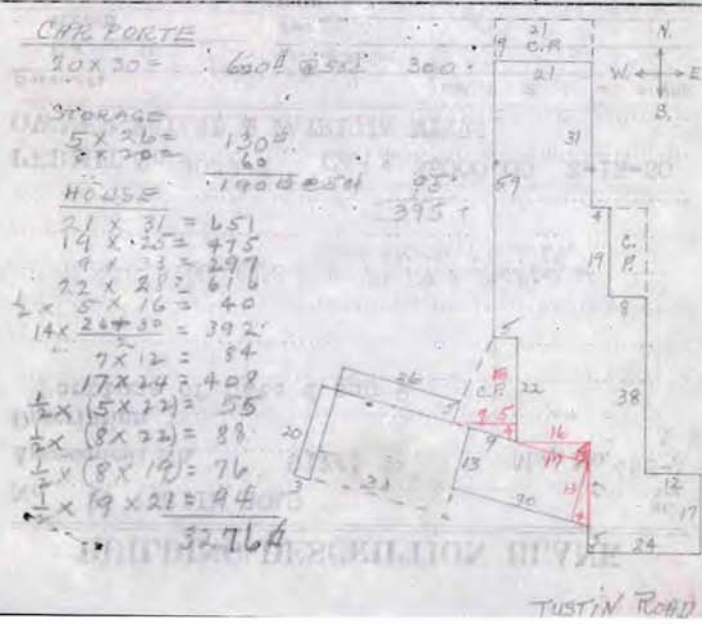 CAR PORTE
20 x 30 = 600# @ 50¢ 300.
STORAGE
5 x 26 = 130#
3 x 20 = 60
190# @ 50¢ 95.
395
HOUSE
21 x 31 = 651
19 x 25 = 475
9 x 33 = 297
22 x 28 = 616
1/2 x 5 x 16 = 40
14 x 26+30/2 = 392
7 x 12 = 84
17 x 24 = 408
1/2 x (5 x 22) = 55
1/2 x (8 x 22) = 88
1/2 x (8 x 19) = 76
1/2 x 9 x 21 = 94
3276#
N.
W. E
S.
21
9 C.P.
21
31
59
4
C.P.
19
8
5
38
22
C.P.
26
9 5
4
16
17
20
3
9
13
13
20
12
17
5
24
TUSTIN ROAD